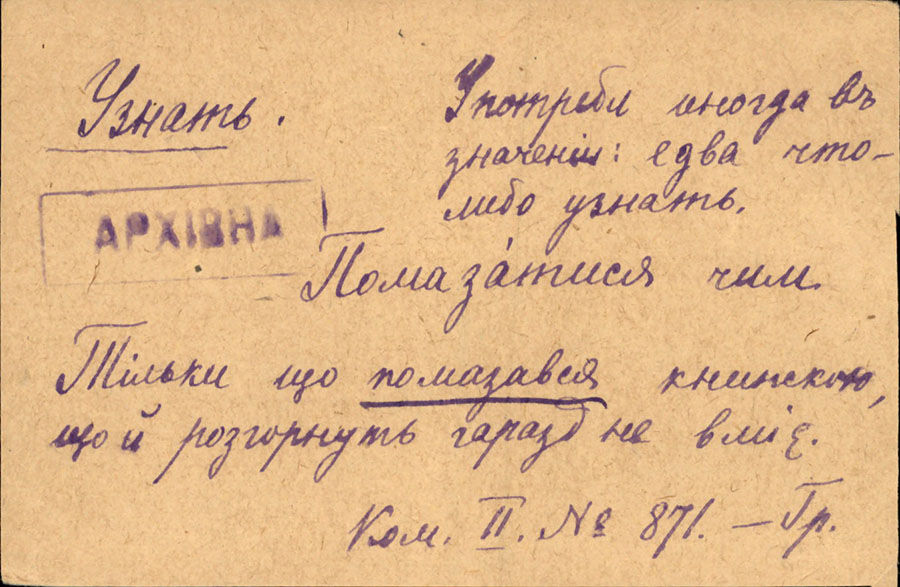 Узнать.
Употребл иногда въ
значеніи: едва что-
либо узнать.
АРХІВНА
Помаза́тися чим.
Тільки що помазався книжкою,
що й розгорнуть гаразд не вміє.
Ком. II. № 871. — Гр.